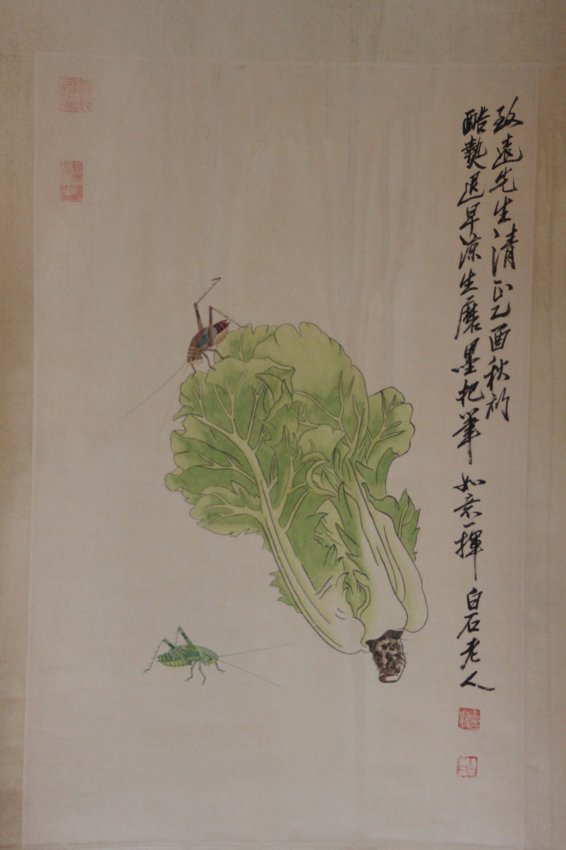 致遠先生清正乙酉秋初
酷熱退早涼生磨墨把筆如意一揮白石老人